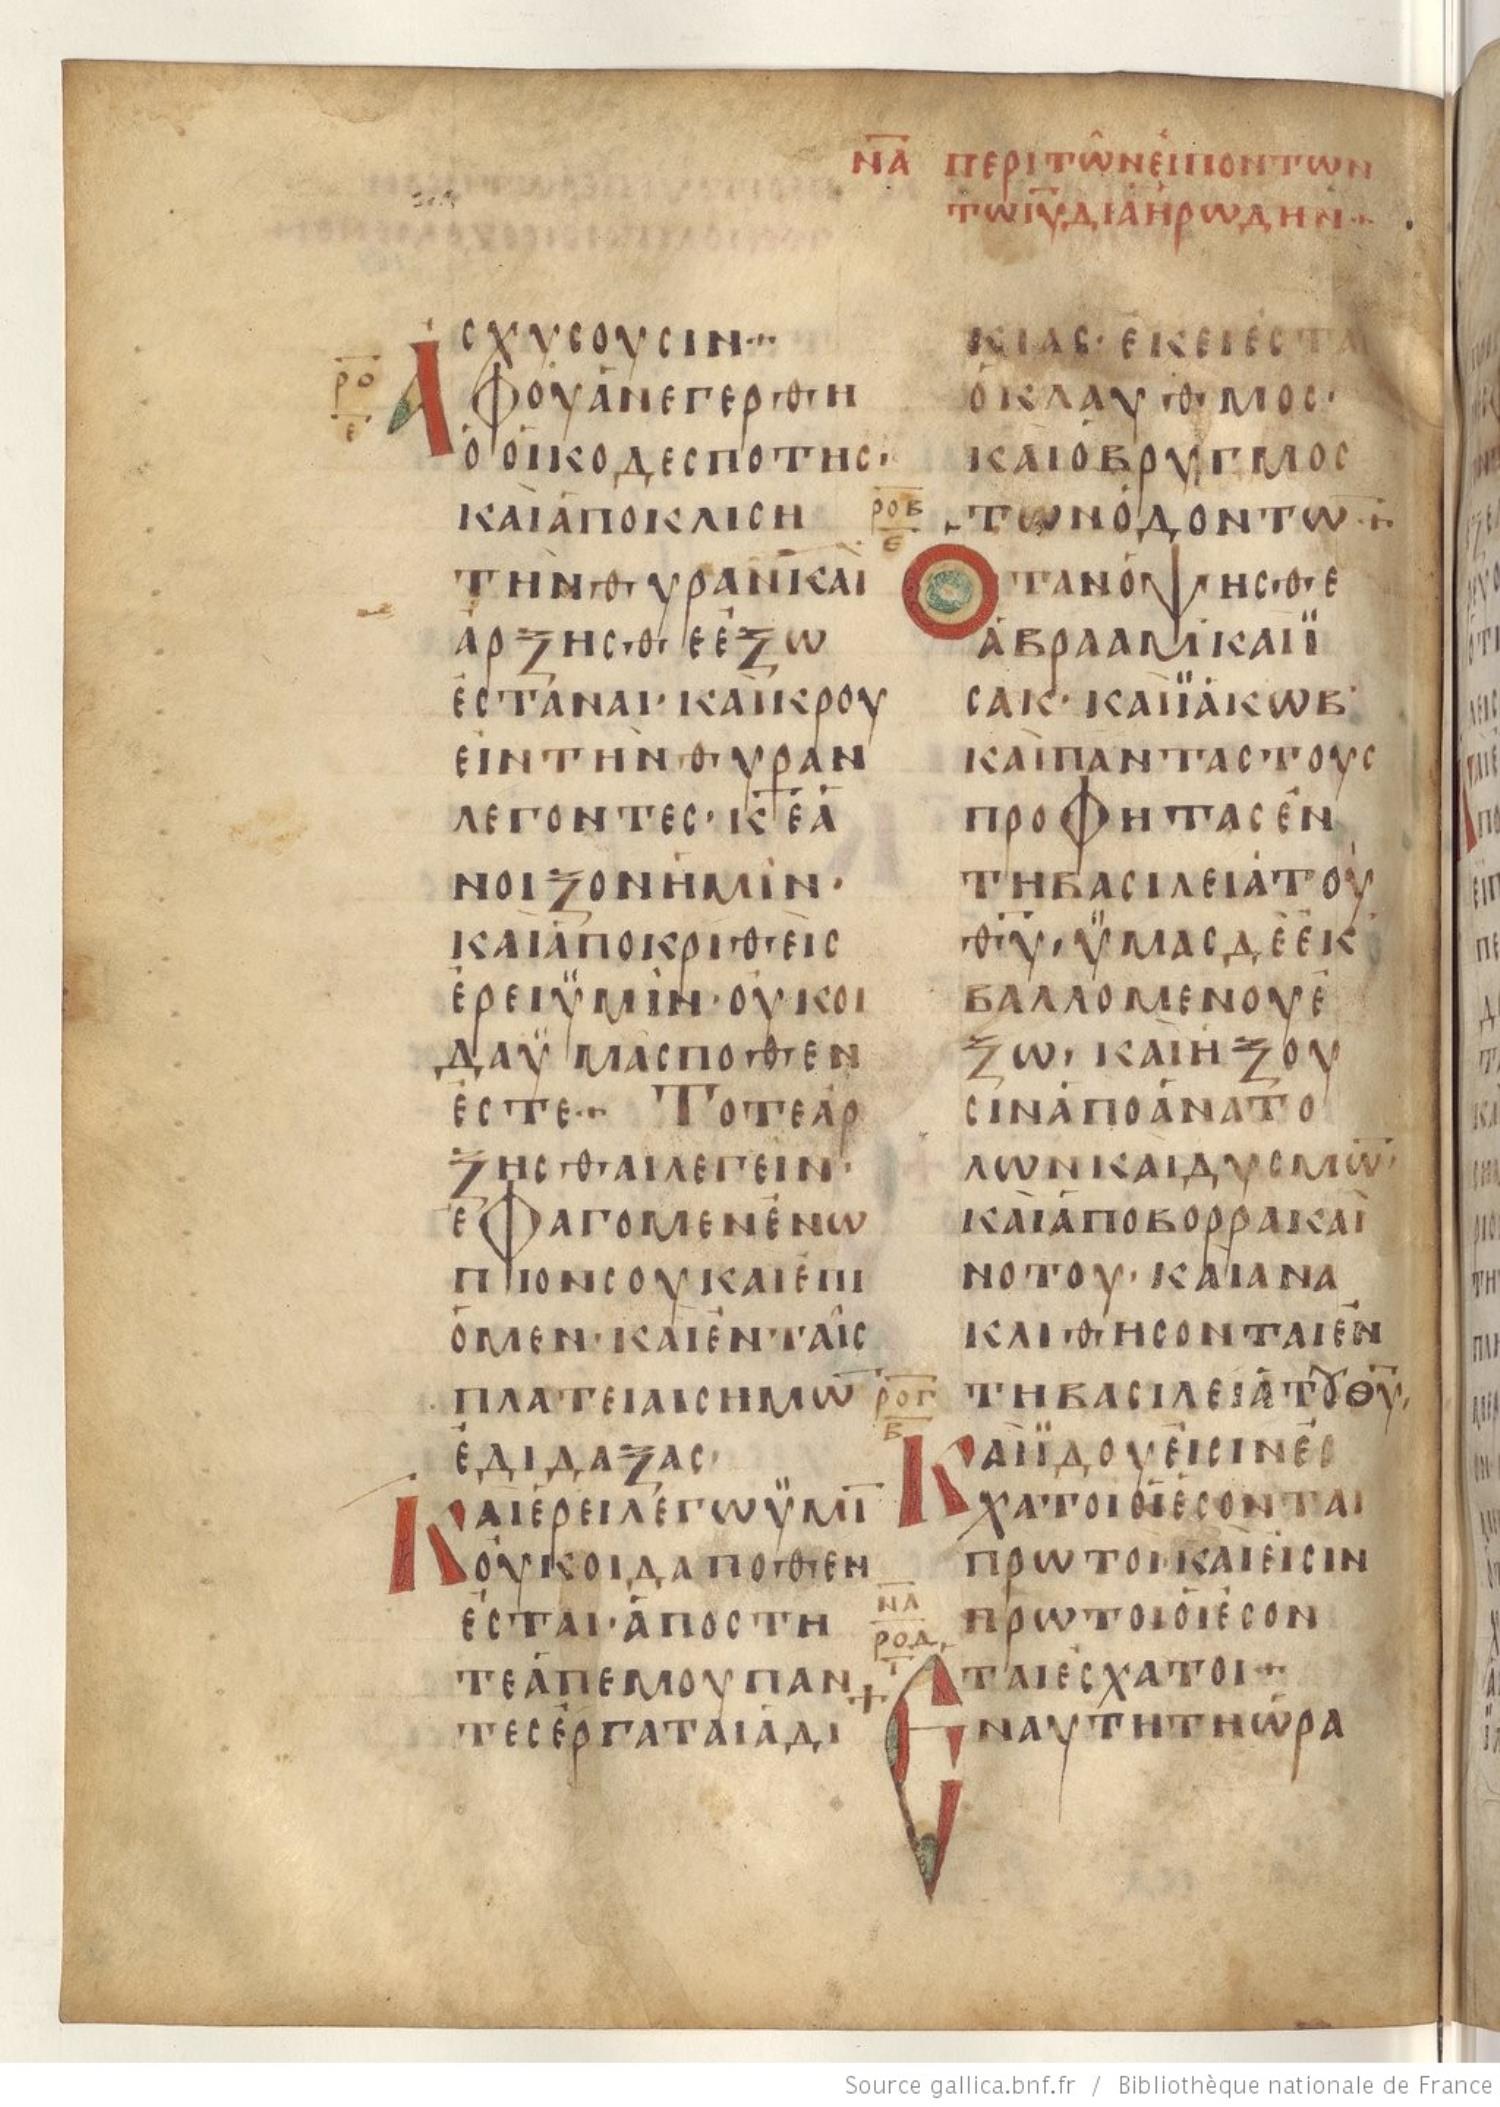 ΝΑ ΠΕΡΙΤΩΝΕΙΠΟΝΤΩΝ
ΤΩΙΥΔΙΑΗΡΩΔΗΝ
ΙΣΧΥΣΟΥΣΙΝ
ΡΟ
Ε
ΑΦΟΥΑΝΕΓΕΡΘΗ
ΟΟΙΚΟΔΕΣΠΟΤΗΣ·
ΚΑΙΑΠΟΚΛΙΣΗ
ΤΗΝΘΥΡΑΝΚΑΙ
ΑΡΞΗΣΘΕΕΞΩ
ΕΣΤΑΝΑΙ·ΚΑΙΚΡΟΥ
ΕΙΝΤΗΝΘΥΡΑΝ
ΛΕΓΟΝΤΕΣ·ΚΕΑ
ΝΟΙΞΟΝΗΜΙΝ·
ΚΑΙΑΠΟΚΡΙΘΕΙΣ
ΕΡΕΙΫΜΙΝ·ΟΥΚΟΙ
ΔΑΫΜΑΣΠΟΘΕΝ
ΕΣΤΕ· ΤΟΤΕΑΡ
ΞΗΣΘΑΙΛΕΓΕΙΝ·
ΕΦΑΓΟΜΕΝΕΝΩ
ΠΙΟΝΣΟΥΚΑΙΕΠΙ
ΟΜΕΝ·ΚΑΙΕΝΤΑΙΣ
ΠΛΑΤΕΙΑΙΣΗΜΩ̅
ΕΔΙΔΑΞΑΣ·
ΚΑΙΕΡΕΙΛΕΓΩΫΜΙ̅
ΟΥΚΟΙΔΑΠΟΘΕΝ
ΕΣΤΑΙ·ΑΠΟΣΤΗ
ΤΕΑΠΕΜΟΥΠΑΝ
ΤΕΣΕΡΓΑΤΑΙΑΔΙ
ΚΙΑΣ·ΕΚΕΙΕΣΤΑΙ
ΟΚΛΑΥΘΜΟΣ·
ΚΑΙΟΒΡΥΓΜΟΣ
ΡΟΒ
Ε
ΤΩΝΟΔΟΝΤΩ̅
ΟΤΑΝΟΨΗΣΘΕ
ΑΒΡΑΑΜΚΑΙΪ
ΣΑΚ·ΚΑΙΪΑΚΩΒ
ΚΑΙΠΑΝΤΑΣΤΟΥΣ
ΠΡΟΦΗΤΑΣΕΝ
ΤΗΒΑΣΙΛΕΙΑΤΟΥ
ΘΥ·ΫΜΑΣΔΕΕΚ
ΒΑΛΛΟΜΕΝΟΥΕ
ΞΩ· ΚΑΙΗΞΟΥ
ΣΙΝΑΠΟΑΝΑΤΟ
ΛΩΝΚΑΙΔΥΣΜΩ̅·
ΚΑΙΑΠΟΒΟΡΡΑΚΑΙ
ΝΟΤΟΥ·ΚΑΙΑΝΑ
ΚΛΙΘΗΣΟΝΤΑΙΕΝ
ΤΗΒΑΣΙΛΕΙΑΤȢΘΥ·
ΡΟΓ
Β
ΚΑΙΪΔΟΥΕΙΣΙΝΕΣ
ΧΑΤΟΙΟΙΕΣΟΝΤΑΙ
ΠΡΩΤΟΙ·ΚΑΙΕΙΣΙΝ
ΠΡΩΤΟΙΟΙΕΣΟΝ
ΤΑΙΕΣΧΑΤΟΙ·
ΝΑ
ΡΟΔ
Ι
ΕΝΑΥΤΗΤΗΩΡΑ
Source gallica.bnf.fr / Bibliothèque nationale de France